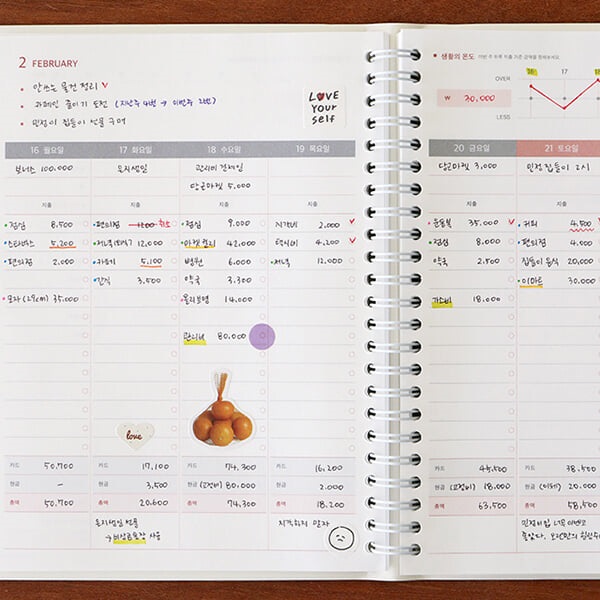 2 FEBRUARY
안쓰는 물건 정리 ✓
카페인 줄이기 도전 (지난주 4번 → 이번주 2번)
민정이 집들이 선물 구매
LOVE
Your
self
16 월요일
보너스 100,000
지출
점심 8,500
스타벅스 5,200
편의점 2,000
모자 (29cm) 35,000
카드 50,700
현금 -
총액 50,700
17 화요일
지출
편의점 1200 취소
12,000
5,100
간식 3,500
love
카드 17,100
현금 3,500
총액 20,600
→ 비상금통장 사용
18 수요일
관리비 결제일
당근마켓 5,000
지출
점심 9,000
마켓컬리 42,000
병원 6,000
약국 3,300
올리브영 14,000
관리비 80,000
카드 74,300
현금 (고정비) 80,000
총액 74,300
19 목요일
지출
지각비 2,000
택시비 4,200
저녁 12,000
카드 16,200
현금 2,000
총액 18,200
지각하지 말자
생활의 온도
OVER
LESS
₩ 30,000
16 17 18
20 금요일
당근마켓 3,000
지출
운동복 35,000
점심 8,000
약국 2,500
가스비 18,000
카드 45,500
현금 (고정비) 18,000
총액 63,500
21 토요일
민정 집들이 2시
지출
커피 4,500
편의점 4,000
집들이 음식 20,000
이마트 30,000
카드 38,500
현금 (이체) 20,000
총액 58,500